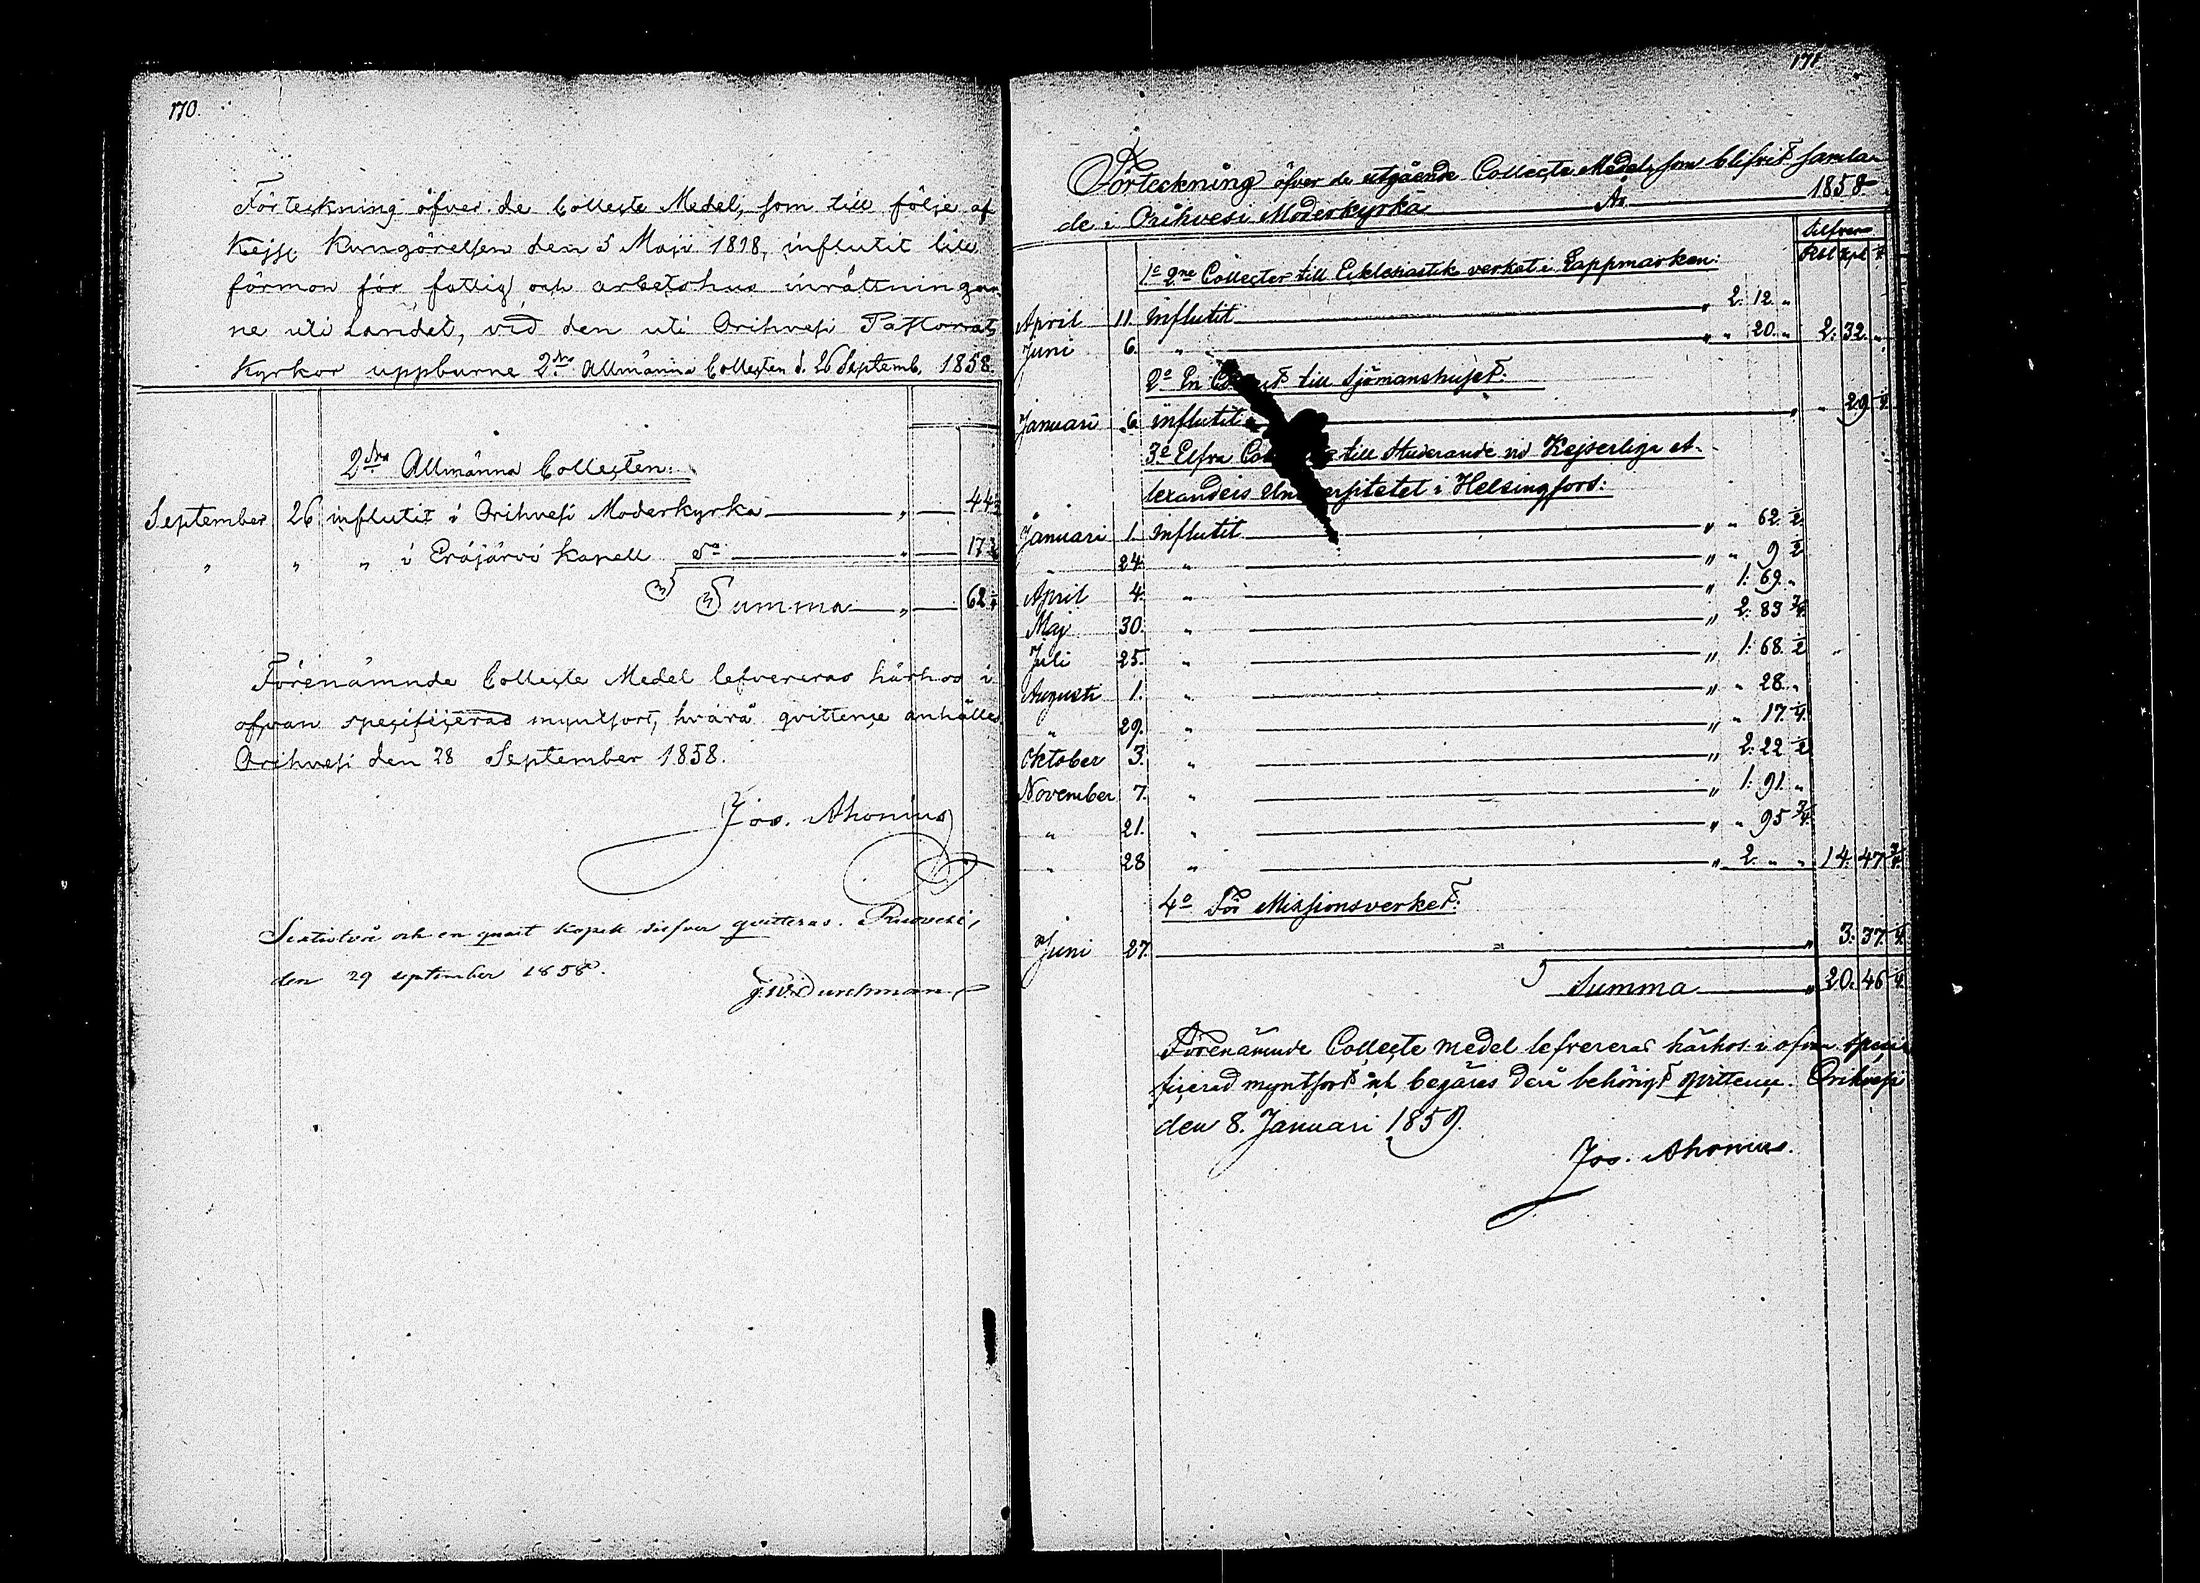 170.
Förteckning öfver de Collecte Medel, som till följe af
Kejs. Kungörelsen den 5 Maji 1818, influtit till
förmon för fattig och arbetshus inrättningar
ne uti Landet, vid den uti Orihvesi Pastorats
Kyrkor uppburne 2dra Allmänna Collecten d. 26 Septemb. 1858.
2dra Allmänna Collecten.
September 26 influtit i Orihvesi Moderkyrka " 44
" " " i Eräjärvi Kapell do " 17
Summa " 62 1/4
Förenämnde Collecte Medel lefvereras härhos i
ofvan specificerad myntsort, hvarå qvittence anhålles
Orihvesi den 28 September 1858.
Jos. Ahonius
Sextiotvå och en quart kopek silfver qvitteras. Ruovesi,
den 29 september 1858.
J. W. Durchman
171
Förteckning öfver de utgående Collecte Medel, som blifvit samla-
de i Orihvesi Moderkyrka År 1858
Silfver
Rbl Kpk
1o 2ne Collecter till Ecklesiastik verket i Lappmarken:
April 11 influtit " 2. 12. "
Juni 6. " " " 20. " 2. 32. "
2o En till Sjömanshuset.
Januari 6 influtit " " 29 1/4
3o Elfva till Studerande vid Kejserliga Al-
lexanders Universitetet i Helsingfors:
Januari 1. influtit " " 62. 1/2
" 24. " " " 9 1/2
April 4. " " 1. 69. "
Maj 30. " " 2. 83 3/4
Juli 25. " " 1. 68. 1/2
Augusti 1. " " " 28. "
" 29. " " " 17. 1/4
Oktober 3. " " 2. 22 1/2
November 7. " " 1. 91. "
" 21. " " " 95 3/4
" 28 " " 2. " " 14. 47 3/4
4o För Missionsverket.
Juni 27. " " 3. 37. 1/4
Summa " 20. 46 1/4
Förenämnde Collecte medel lefvereras härhos i ofvan speci
ficerad myntsort och begäres derå behörigt qvittence. Orihvesi
den 8. Januari 1859.
Jos. Ahonius.